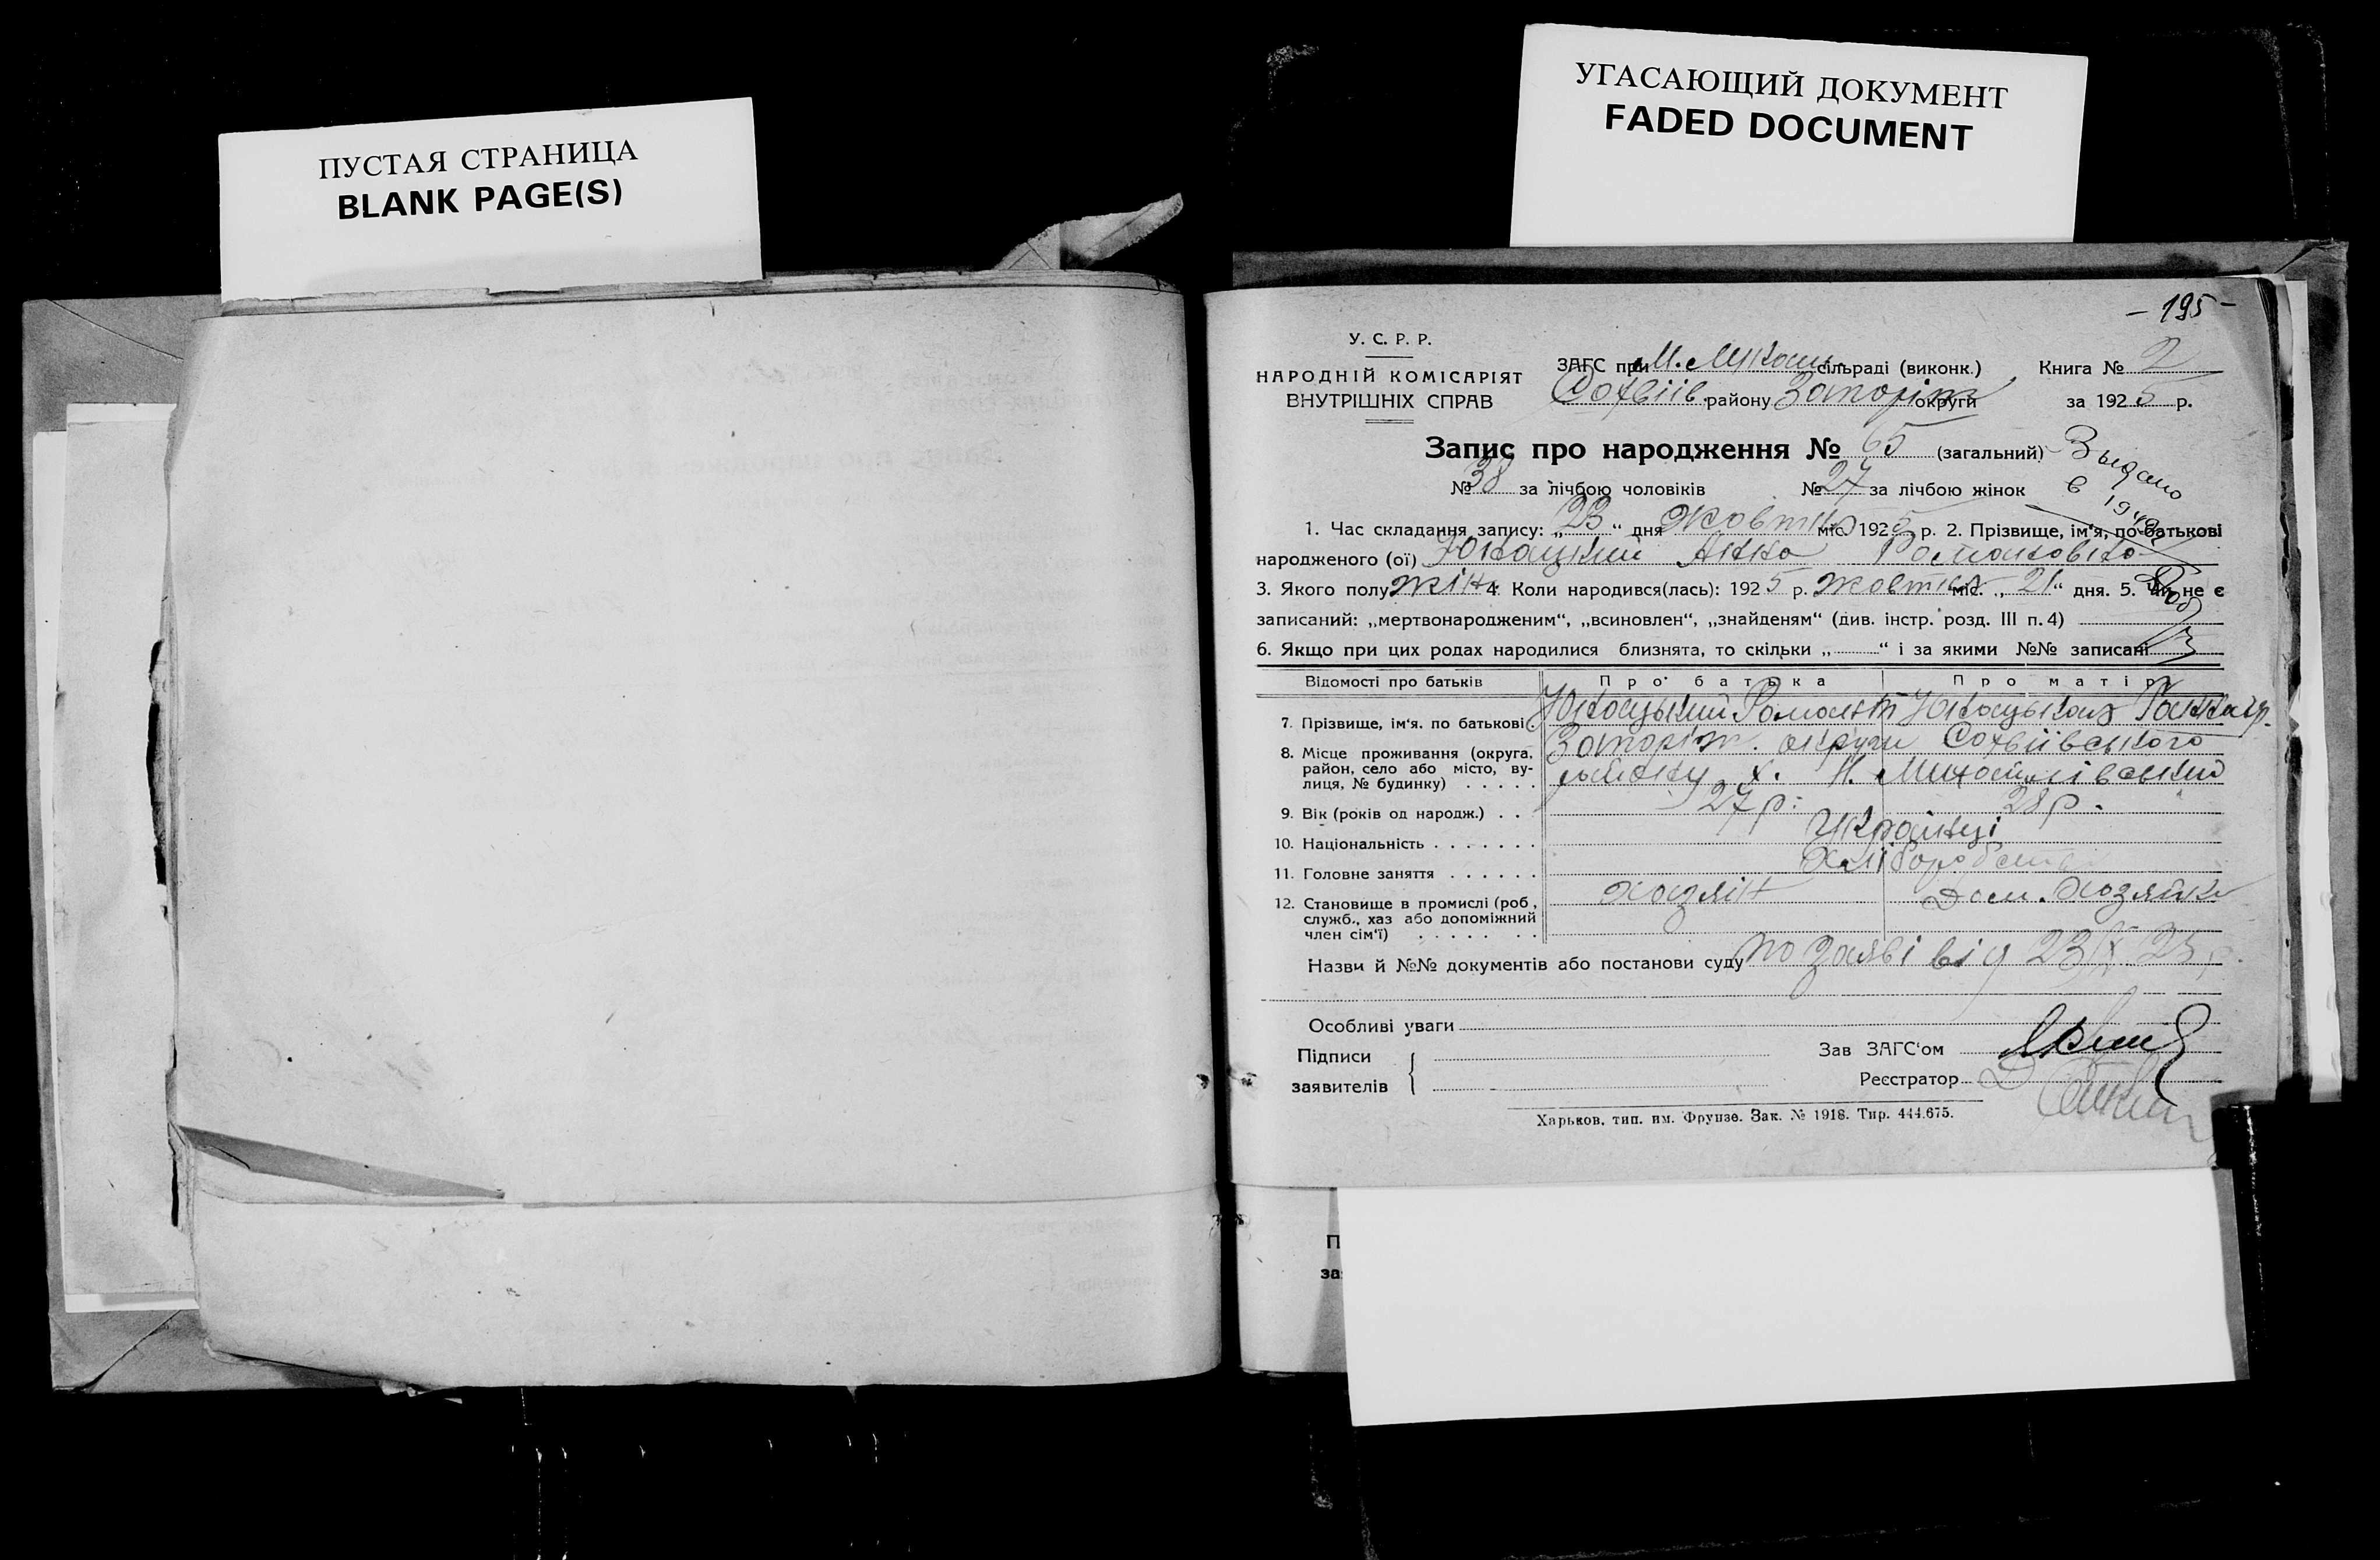 ПУСТАЯ СТРАНИЦА
BLANK PAGE(S)
УГАСАЮЩИЙ ДОКУМЕНТ
FADED DOCUMENT
- 195 -
У. С. Р. Р.
НАРОДНІЙ КОМІСАРІЯТ
ВНУТРІШНІХ СПРАВ
ЗАГС при сільраді (виконк.) Книга № 2
Софіїв. району Запоріж округи за 1925 р.
Запис про народження № 65 (загальний)
Выдано
в 1948
№ 38 за лічбою чоловіків № 27 за лічбою жінок
1. Час складання запису: „23“ дня жовтня міс. 1925 р. 2. Прізвище, ім'я, по-батькові
народженого (ої) Юнацький Анна Романовна
3. Якого полу жін 4. Коли народився(лась): 1925 р. жовтня міс. „21“ дня. 5. Чи не є
записаний: „мертвонародженим“, „всиновлен“, „знайденям“ (див. інстр. розд. III п. 4)
6. Якщо при цих родах народилися близнята, то скільки „ “ і за якими №№ записані
Відомості про батьків Про батька Про матір
7. Прізвище, ім'я. по батькові Юнацький Роман Юнацькая Ганна
8. Місце проживання (округа, район, село або місто, вулиця, № будинку) Запоріж. округи Софіївського
району х. Н. Михайлівський
9. Вік (років од народж.) 27 р. 28 р.
10. Національність Українці
11. Головне заняття Хлібороб
12. Становище в промислі (роб, служб., хаз або допоміжний член сім'ї) хозяїн Дом. хозяйка
Назви й №№ документів або постанови суду по заяві від 23/X 25 р.
Особливі уваги
Підписи
заявителів
Зав ЗАГС'ом
Реєстратор
Харьков, тип. им. Фрунзе. Зак. № 1918. Тир. 444.675.
П
за